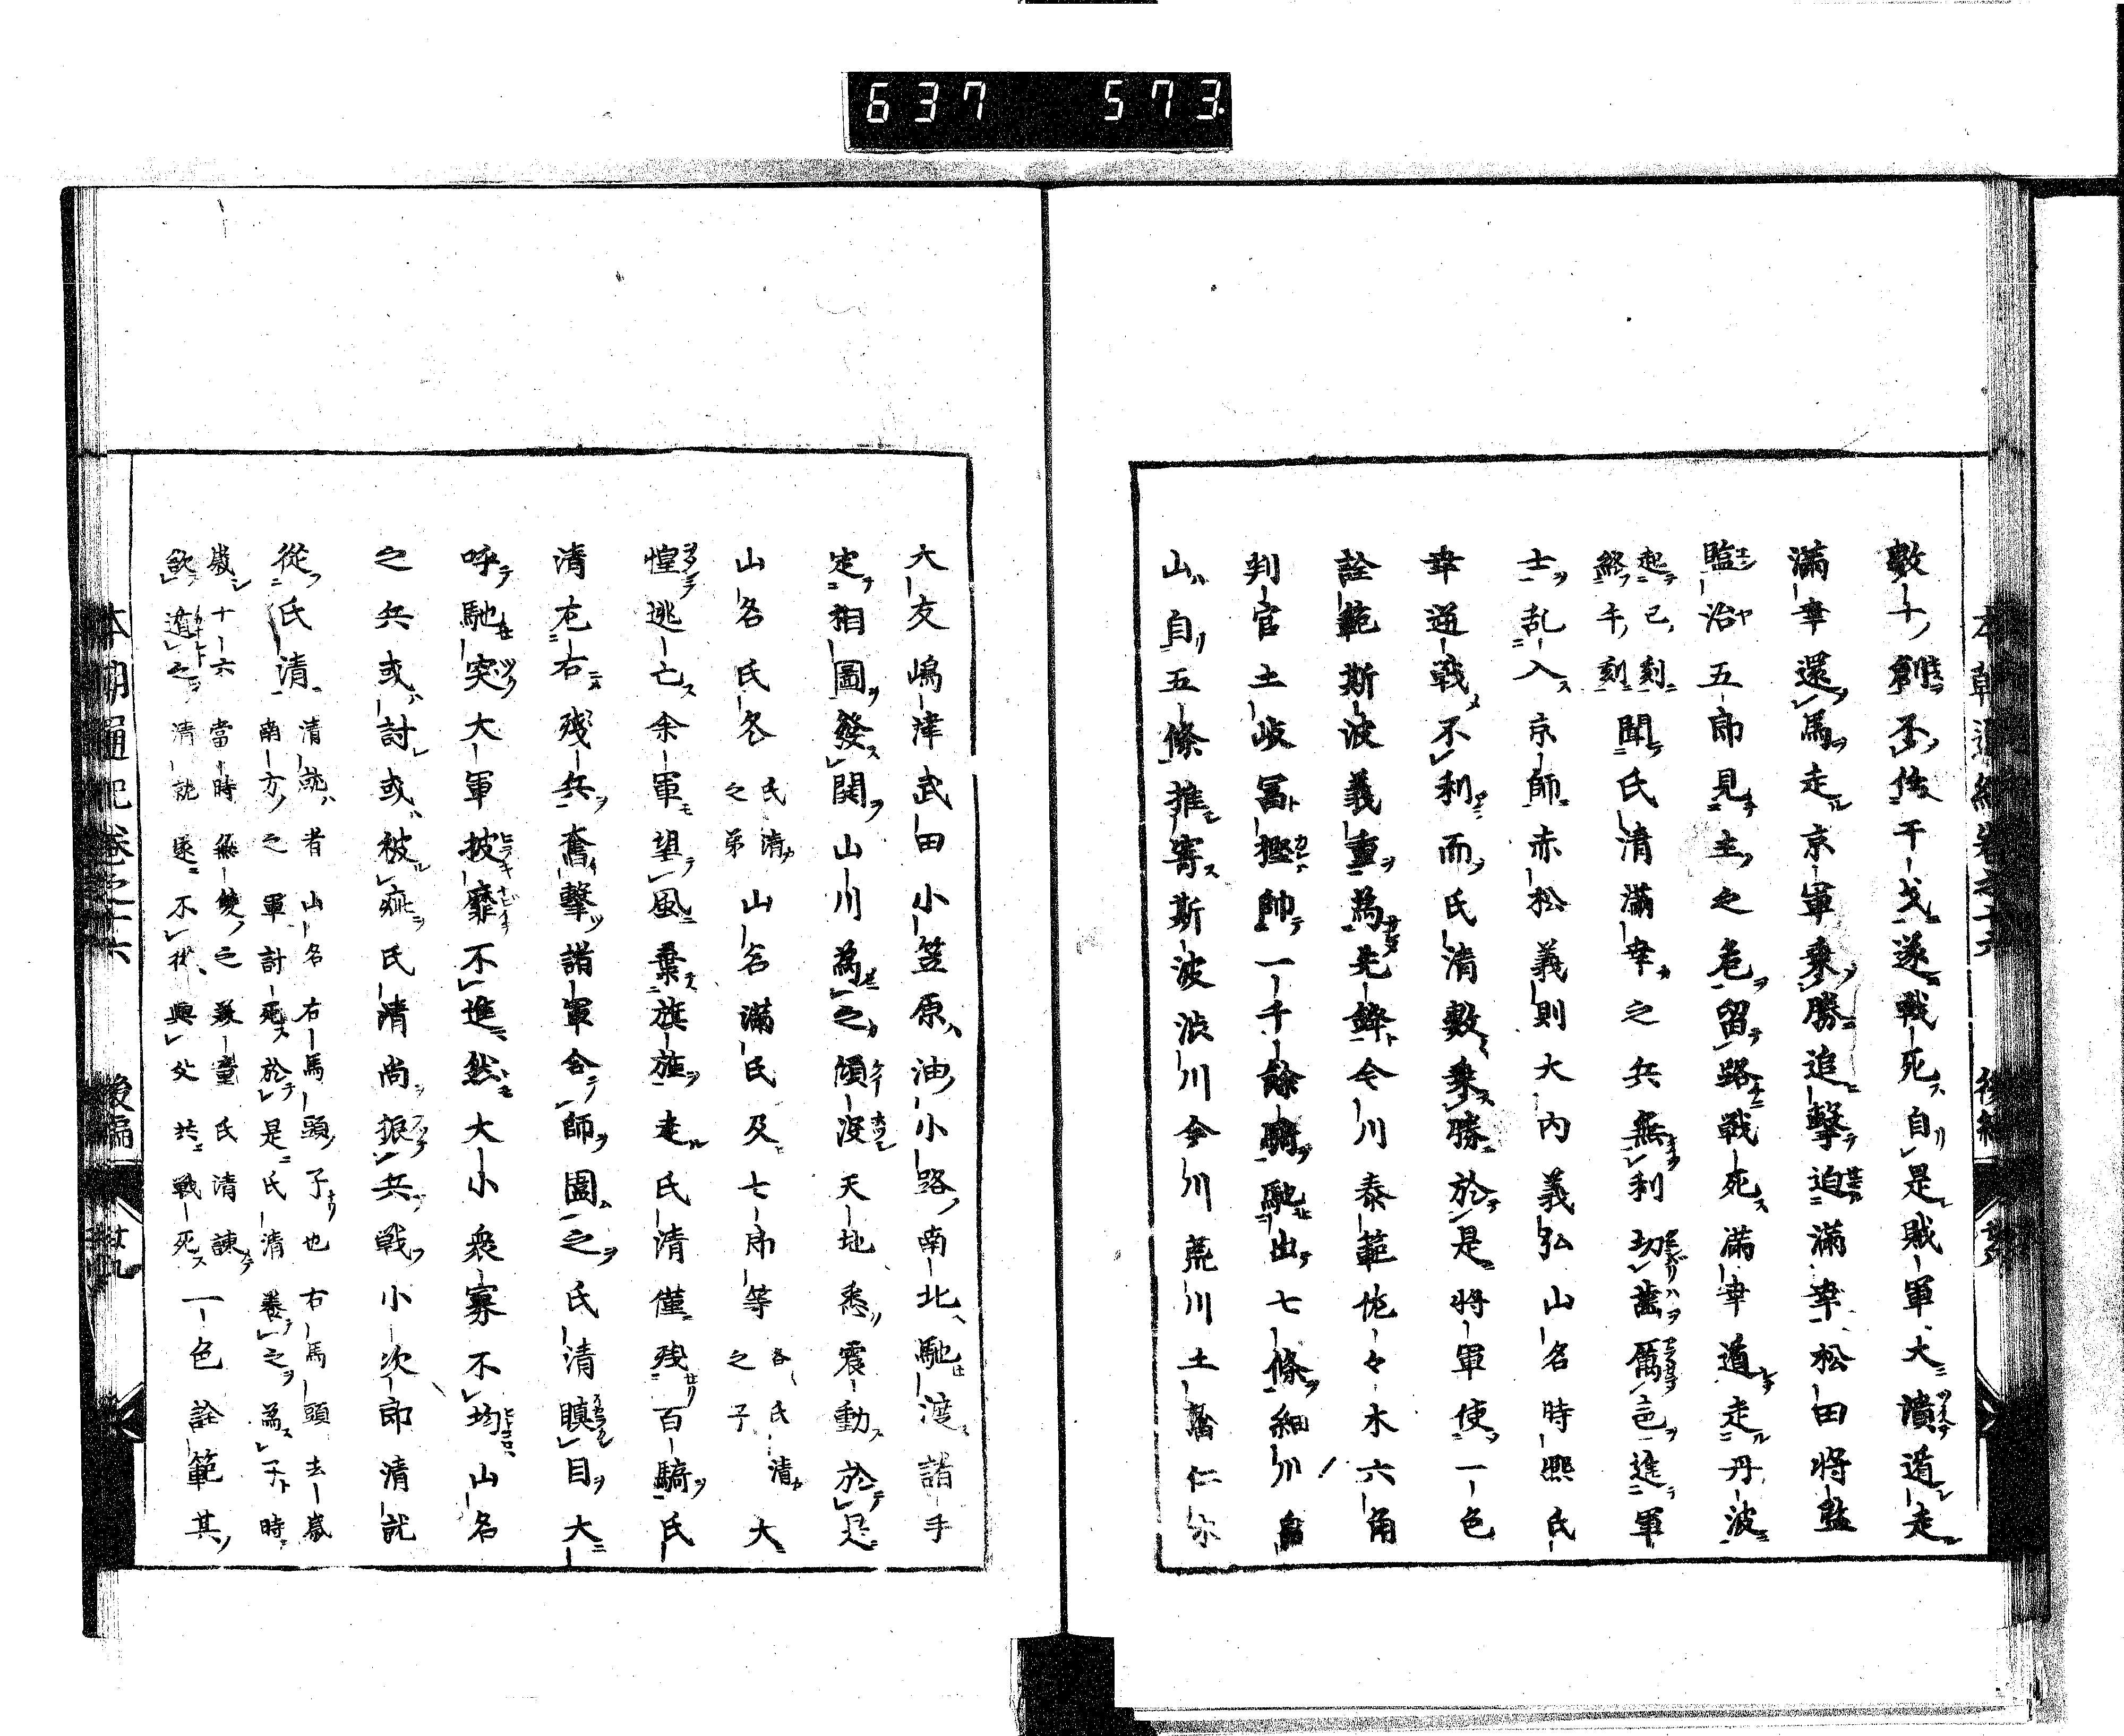 637 573
數十創不伎干戈遂戰死自是賊軍大潰遁走
滿幸還馬走京軍乘勝追擊迫滿幸松田將監
臨治五郎見主之危留路戰死滿幸遁走丹波
起已刻
終午刻
聞氏清滿幸之兵無利切齒厲色進軍
士乱入京師赤松義則大內義弘山名時熙氏
幸逆戰不利而氏清數乘勝於是將軍使一色
詮範斯波義重為先鋒今川泰範佐々木六角
判官土岐冨樫帥一千餘騎馳出七條細川畠
山自五條推寄斯波渋川今川荒川土蕃仁木
大友嶋津武田小笠原油小路南北馳渡諸手
定相圖發鬨山川為之傾沒天地悉震動於是
山名氏冬
氏清
之弟
山名滿氏及七郎等
各氏清
之子
大
惶逃亡余軍望風棄旗旌走氏清僅殘百騎氏
清左右殘兵奮擊諸軍合師圍之氏清瞋目大
呼馳突大軍披靡不進然大小衆寡不均山名
之兵或討或被疵氏清尚振兵戰小次郎清訛
從氏清
清訛者山名右馬頭子也右馬頭去歲
南方之軍討死於是氏清養之為子時
歲十六當時無雙之義童氏清諫
欲遁之清訛遂不從與父共戰死
一色詮範其
本朝通紀卷之十六 後編 廿九